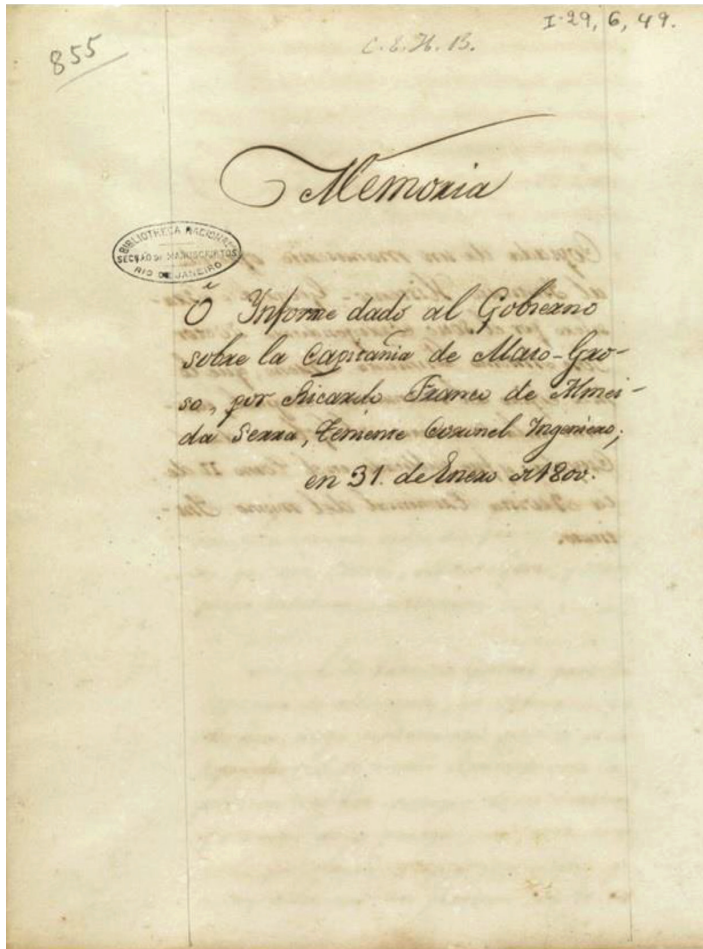 855
C. E. H. B.
I-29, 6, 49.
Memoria
BIBLIOTHECA NACIONAL
SECÇÃO DE MANUSCRIPTOS
RIO DE JANEIRO
Ó Informe dado al Gobierno
sobre la Capitania de Mato-Gro-
so, por Ricardo Franco de Almei-
da Serra, Teniente Coronel Ingeniero,
en 31. de Enero de 1800.